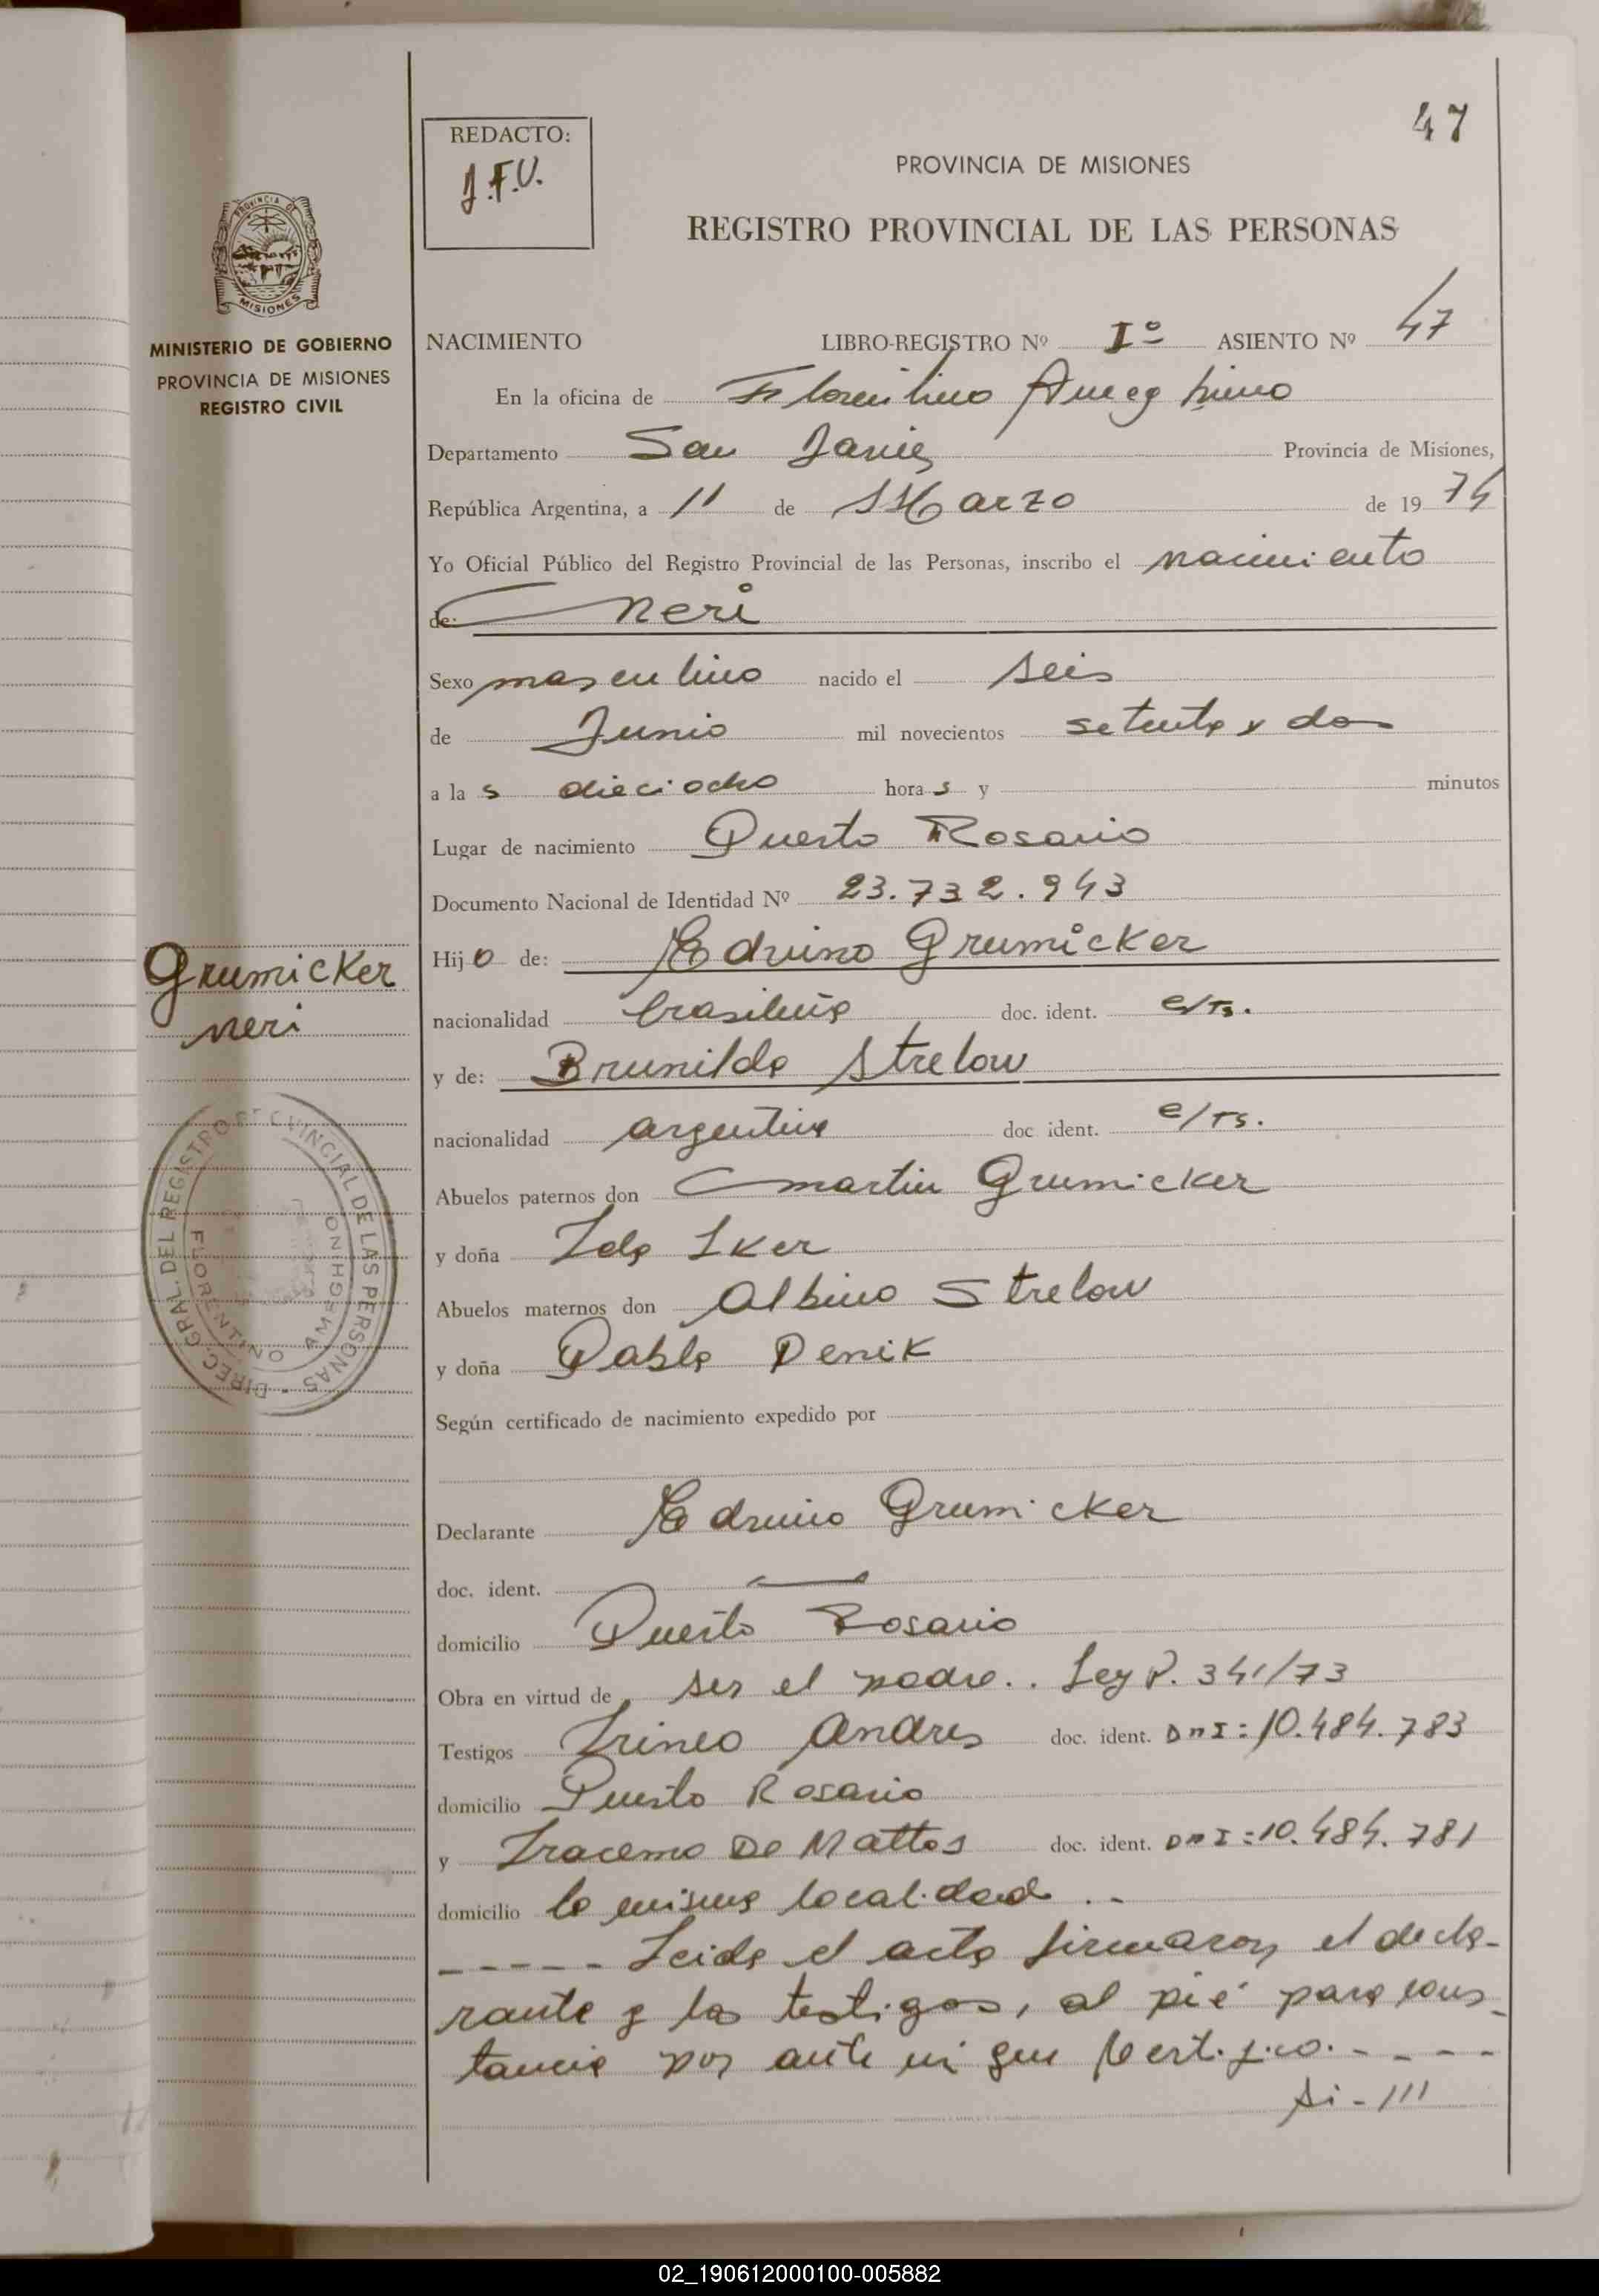 47
REDACTO:
J.F.V.
PROVINCIA DE MISIONES
REGISTRO PROVINCIAL DE LAS PERSONAS
PROVINCIA DE
MISIONES
MINISTERIO DE GOBIERNO
PROVINCIA DE MISIONES
REGISTRO CIVIL
NACIMIENTO LIBRO-REGISTRO Nº Iº ASIENTO Nº 47
En la oficina de Florentino Ameghino
Departamento San Javier Provincia de Misiones,
República Argentina, a 11 de Marzo de 19 74
Yo Oficial Público del Registro Provincial de las Personas, inscribo el nacimiento
de: Neri
Sexo masculino nacido el seis
de Junio mil novecientos setenta y dos
a la s dieciocho hora s y minutos
Lugar de nacimiento Puerto Rosario
Documento Nacional de Identidad Nº 23.732.943
Hij o de: Edvino Grumicker
nacionalidad brasileña doc. ident. e/Ts.
y de: Brunilda Strelow
nacionalidad argentina doc ident. e/Ts.
Abuelos paternos don Martin Grumicker
y doña Ida Iker
Abuelos maternos don Albino Strelow
y doña Pabla Penik
Según certificado de nacimiento expedido por
Declarante Edvino Grumicker
doc. ident.
domicilio Puerto Rosario
Obra en virtud de ser el padre.. Ley P. 341/73
Testigos Irineo Andres doc. ident. DNI: 10.484.783
domicilio Puerto Rosario
y Iracema De Mattos doc. ident. DNI: 10.484.781
domicilio la misma localidad..
----- Leida el acta firmaron el decla-
rante y los testigos, al pié para cons-
tancia por ante mi que Certifico.----
si-///
Grumicker
Neri
DIREC. GRAL. DEL REGISTRO PROVINCIAL DE LAS PERSONAS
FLORENTINO AMEGHINO
02_190612000100-005882